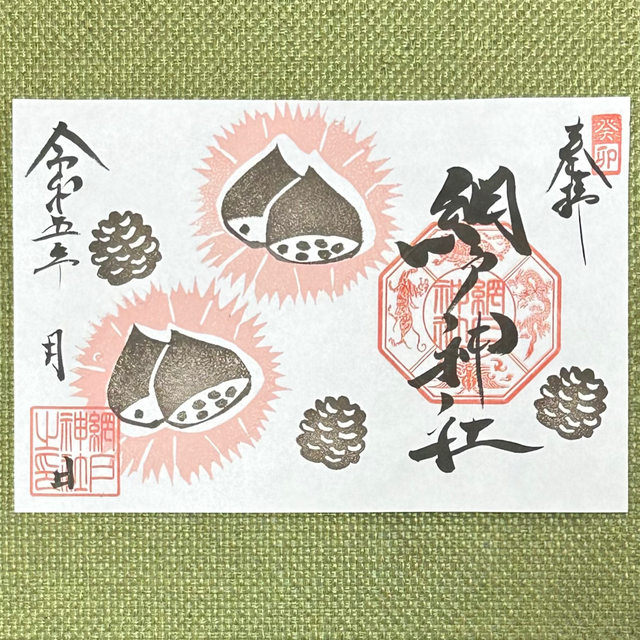 奉拝
癸卯
網戸神社
網戸
神社
令和五年
月
日
網戸
神社
之印